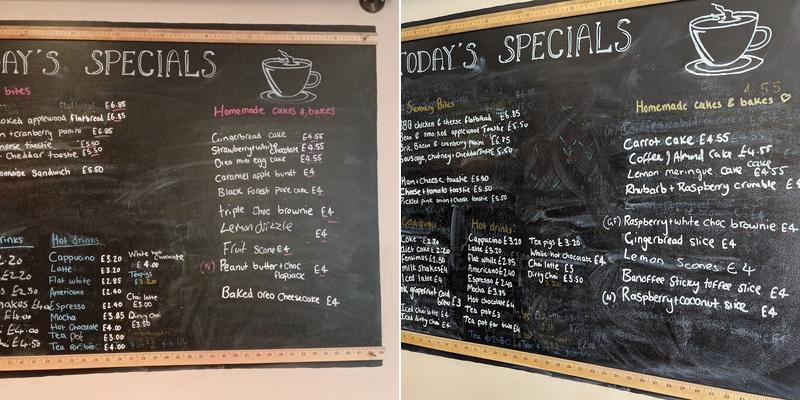 AY'S SPECIALS
bites
£6.85
smoked applewood Flatbread £6.85
+cranberry panini £6.85
toastie £5.50
+ Cheddar toastie £5.50
Sandwich £5.50
Homemade cakes & bakes
Gingerbread cake £4.55
Strawberry+white Chocolate £4.55
Oreo mini egg cake £4.55
Caramel apple bundt £4
Black forest poke cake £4
triple choc brownie £4
Lemon drizzle £4
Fruit Scone £4
(N) Peanut butter+choc flapjack £4
Baked Oreo Cheesecake £4
rinks
£2.20
£2.20
£4.00
£4.50
Hot drinks
Cappucino £3.20
Latte £3.20
Flat white £2.95
Americano £2.40
Espresso £2.40
Mocha £3.85
Hot Chocolate £4.00
Tea Pot £3.00
Tea for two £4.00
White hot chocolate £4.00
Tea pigs £3.20
Chai latte £3.00
Dirty Chai £3.50
TODAY'S SPECIALS
Savoury Bites
BBQ chicken & cheese flatbread £6.85
Bean & smoked applewood Toastie £5.50
Brie, Bacon & cranberry panini £6.85
Sausage, chutney+Cheddar toastie £5.50
Ham+Cheese toastie £5.50
Cheese+tomato toastie £5.50
Pickled pink onion+Cheese toastie £5.50
Coke £2.20
Diet coke £2.20
milk shakes £4
Iced latte £4
Iced chai latte £4
Iced dirty chai £4
Hot drinks:
Cappucino £3.20
Latte £3.20
Flat white £2.95
Americano £2.40
Espresso £2.40
Mocha £3.85
Hot chocolate £4
Tea pot £3
Tea pot for two £4
Tea pigs £3.20
White hot chocolate £4
Chai latte £3
Dirty Chai £3.50
Homemade cakes & bakes
Carrot cake £4.55
Coffee & Almond Cake £4.55
Lemon meringue cake £4.55
Rhubarb + Raspberry crumble
(GF) Raspberry+white choc brownie £4
Gingerbread slice £4
Lemon Scones £4
Banoffee Sticky toffee slice £4
(N) Raspberry+coconut slice £4